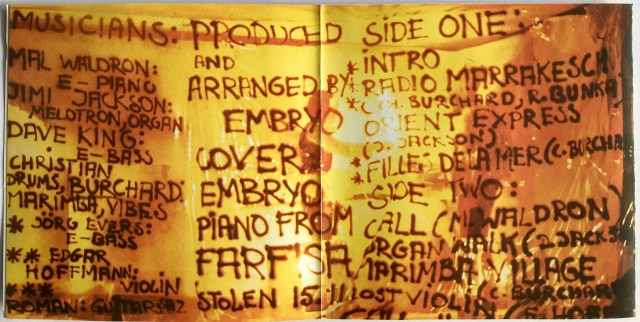 MUSICIANS:
MAL WALDRON:
E-PIANO
JIMI JACKSON:
MELOTRON, ORGAN
DAVE KING:
E-BASS
CHRISTIAN
DRUMS, BURCHARD:
MARIMBA, VIBES
* JÖRG EVERS:
E-BASS
** EDGAR
HOFFMANN:
*** VIOLIN
ROMAN: GUITARS
PRODUCED
AND
ARRANGED BY:
EMBRYO
COVER:
EMBRYO
PIANO FROM
FARFISA
STOLEN 15.11
SIDE ONE:
* INTRO
* RADIO MARRAKESCH
(C. BURCHARD, R. BUNKA)
ORIENT EXPRESS
(J. JACKSON)
* FILLES DE LA MER (C. BURCHAR
SIDE TWO:
CALL (M. WALDRON)
ORGAN WALK (J. JACKS
MARIMBA VILLAGE
LOST VIOLIN (C. BURCHAR